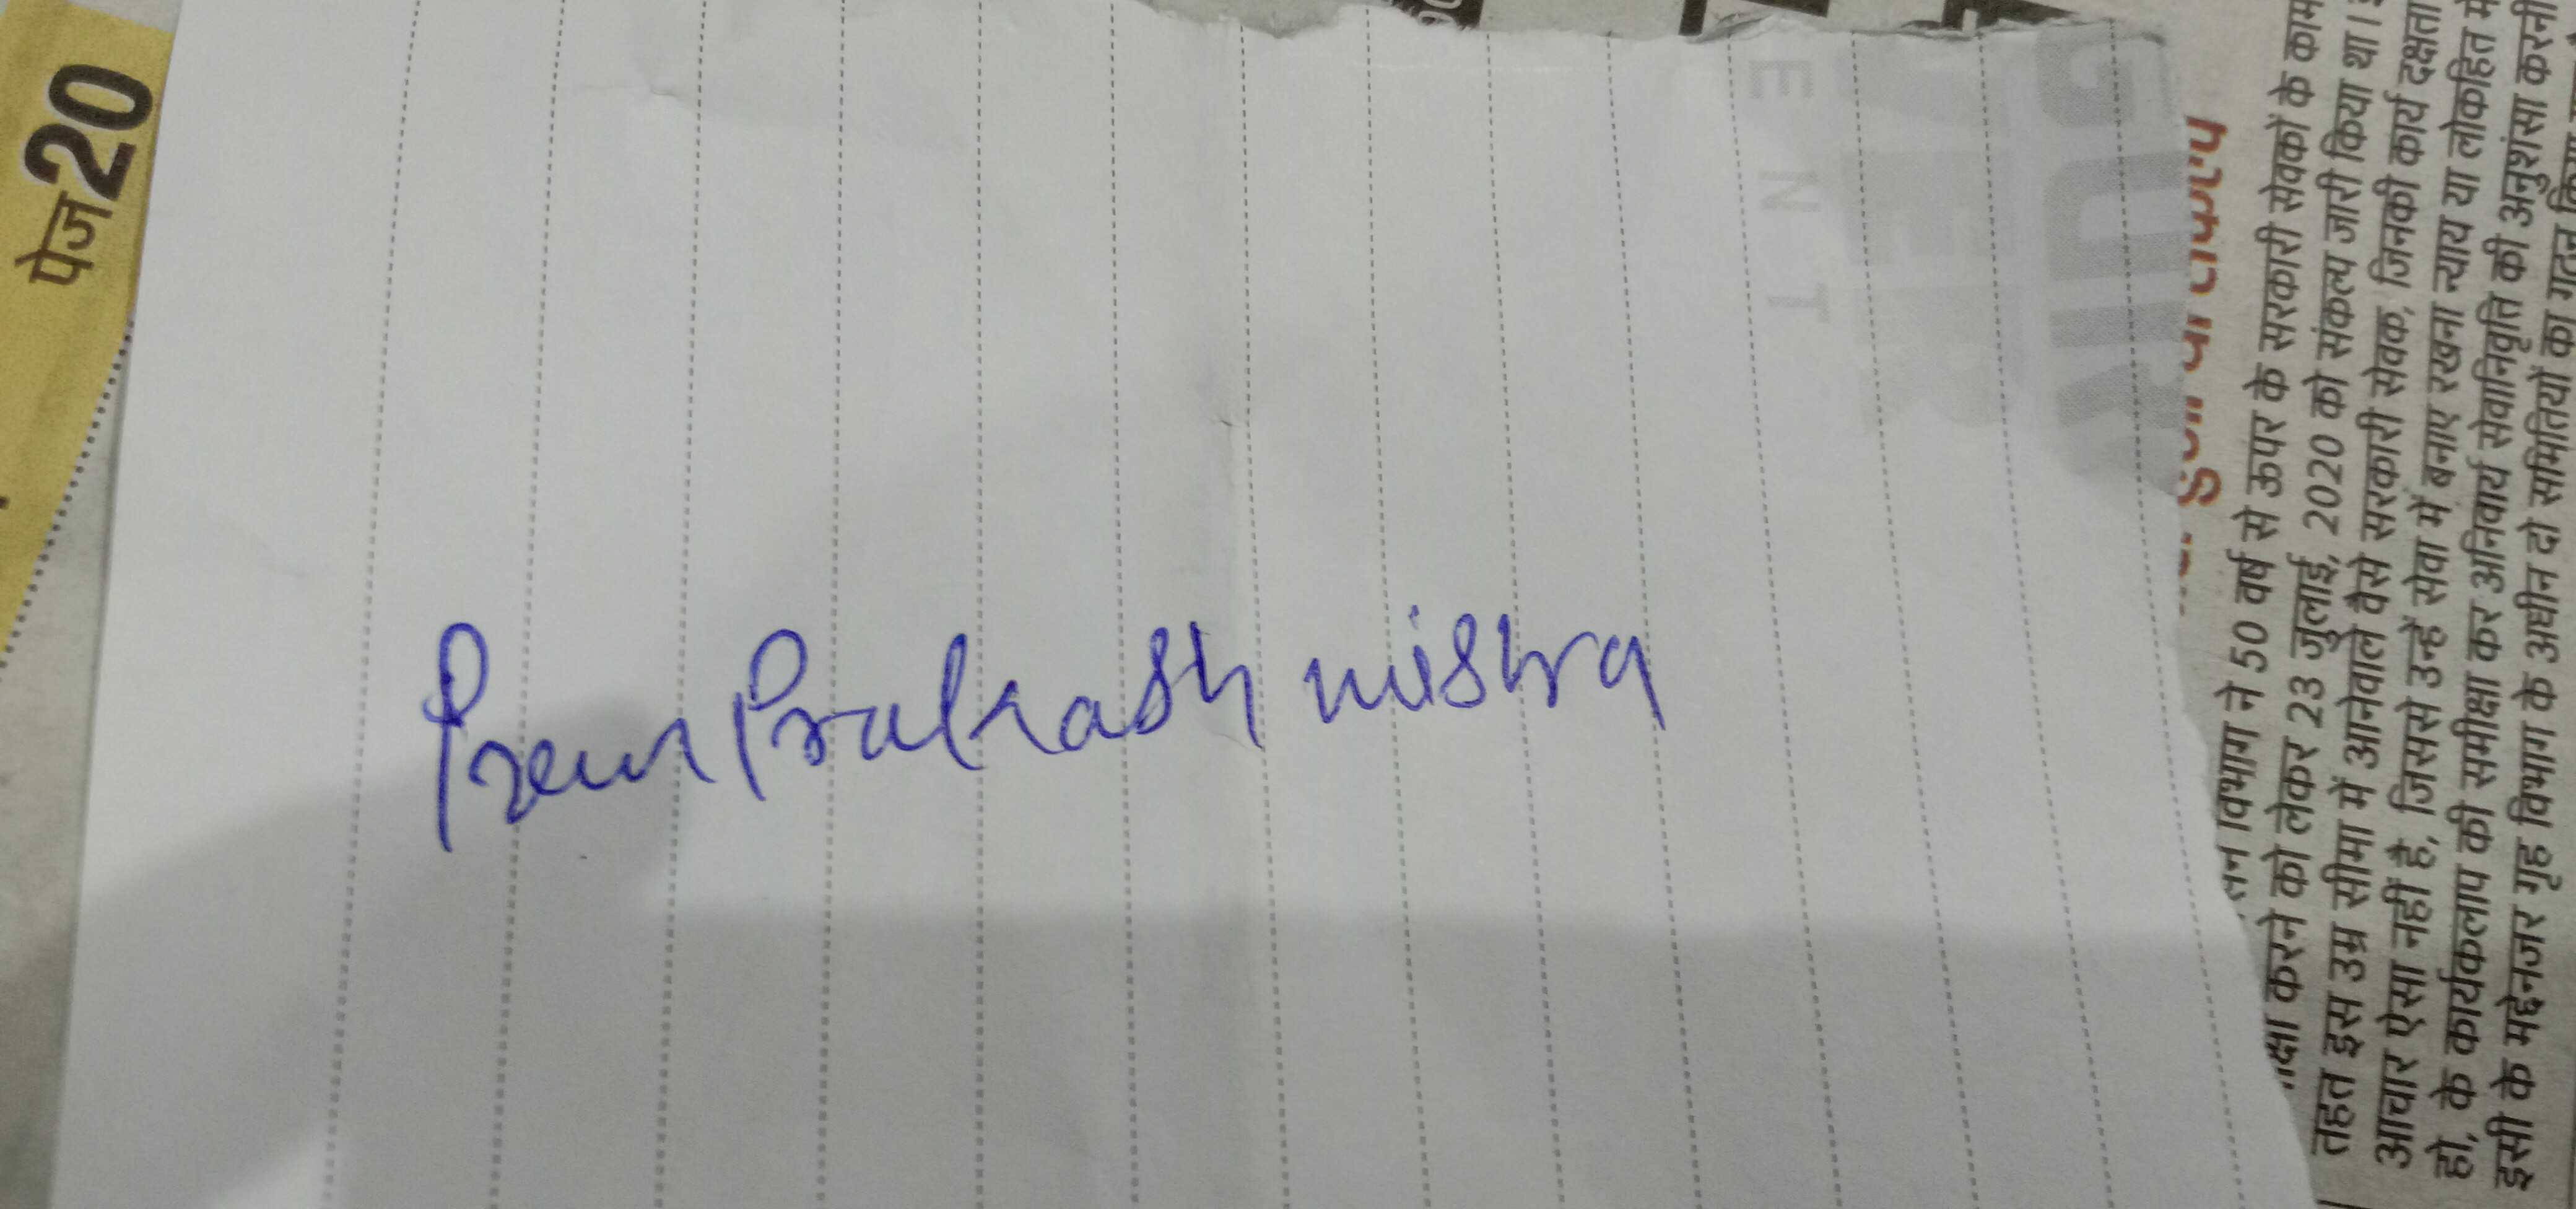 Prem Prakash mishra
पेज 20
E N T
GUR
सन विभाग ने 50 वर्ष से ऊपर के सरकारी सेवकों के काम
करने को लेकर 23 जुलाई, 2020 को संकल्प जारी किया था।
तहत इस उम्र सीमा में आनेवाले वैसे सरकारी सेवक, जिनकी कार्य दक्षता
आचार ऐसा नहीं है, जिससे उन्हें सेवा में बनाए रखना न्याय या लोकहित में
हो, के कार्यकलाप की समीक्षा कर अनिवार्य सेवानिवृत्ति की अनुशंसा करनी
इसी के मद्देनजर गृह विभाग के अधीन दो समितियों का गठन